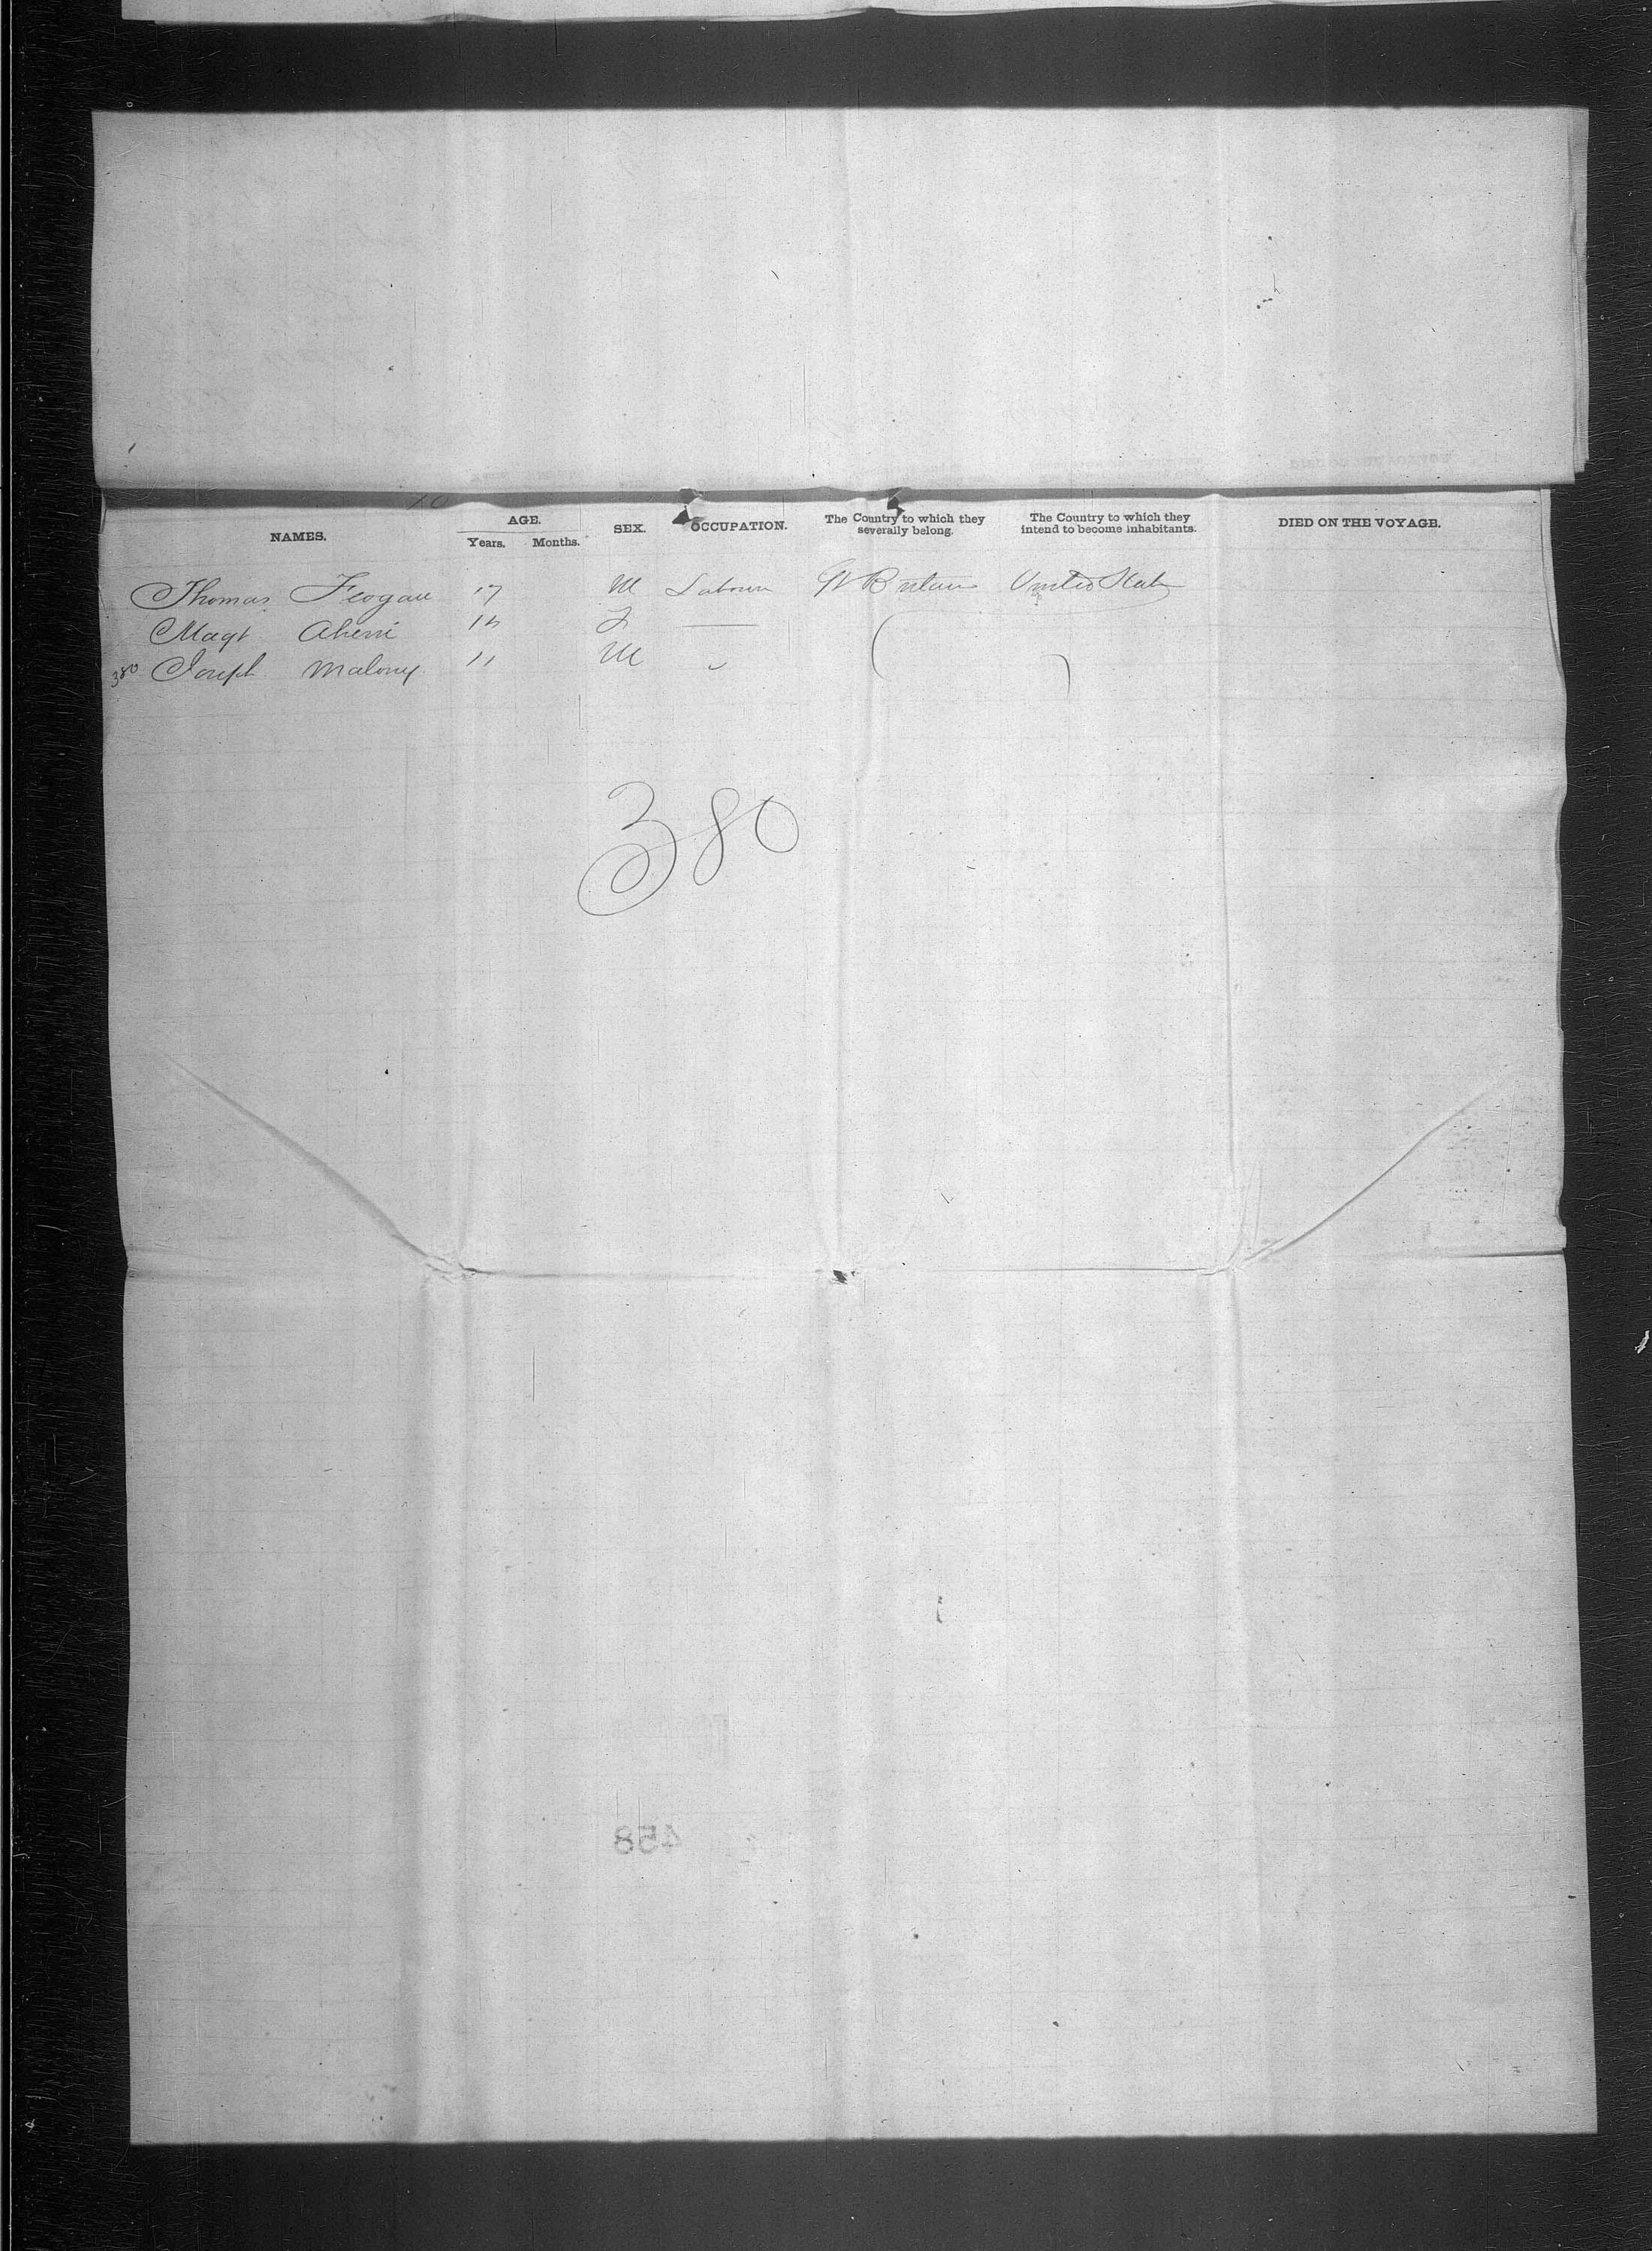 NAMES. AGE. SEX. OCCUPATION. The Country to which they severally belong. The Country to which they intend to become inhabitants. DIED ON THE VOYAGE.
Years. Months.
Thomas Feogan 17 M Labourer Gt Britain United States
Magt Ahern F
380 Joseph Malony 11 M "
380
458